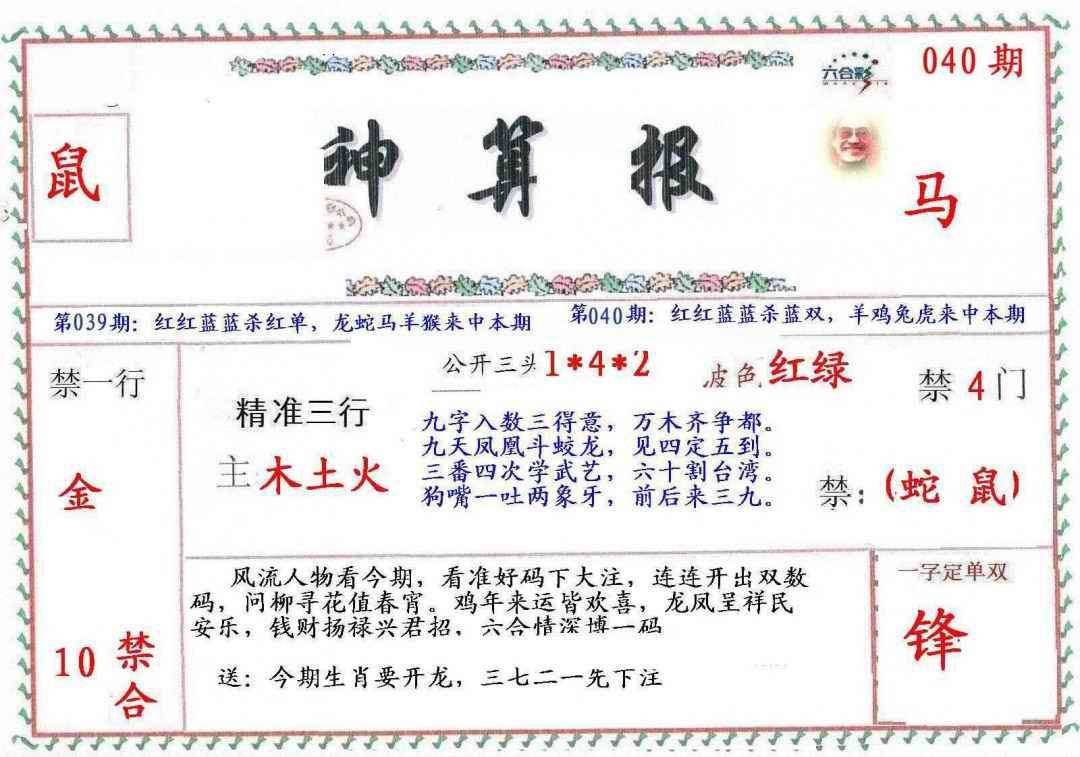 六合彩
040 期
鼠
神算报
马
第039期：红红蓝蓝杀红单，龙蛇马羊猴来中本期
第040期：红红蓝蓝杀蓝双，羊鸡兔虎来中本期
禁一行
金
10 禁合
精准三行
主 木土火
公开三头1*4*2
波色 红绿
九字入数三得意，万木齐争都。
九天凤凰斗蛟龙，见四定五到。
三番四次学武艺，六十割台湾。
狗嘴一吐两象牙，前后来三九。
禁 4 门
禁：（蛇 鼠）
风流人物看今期，看准好码下大注，连连开出双数
码，问柳寻花值春宵。鸡年来运皆欢喜，龙凤呈祥民
安乐，钱财扬禄兴君招，六合情深博一码
送：今期生肖要开龙，三七二一先下注
一字定单双
锋